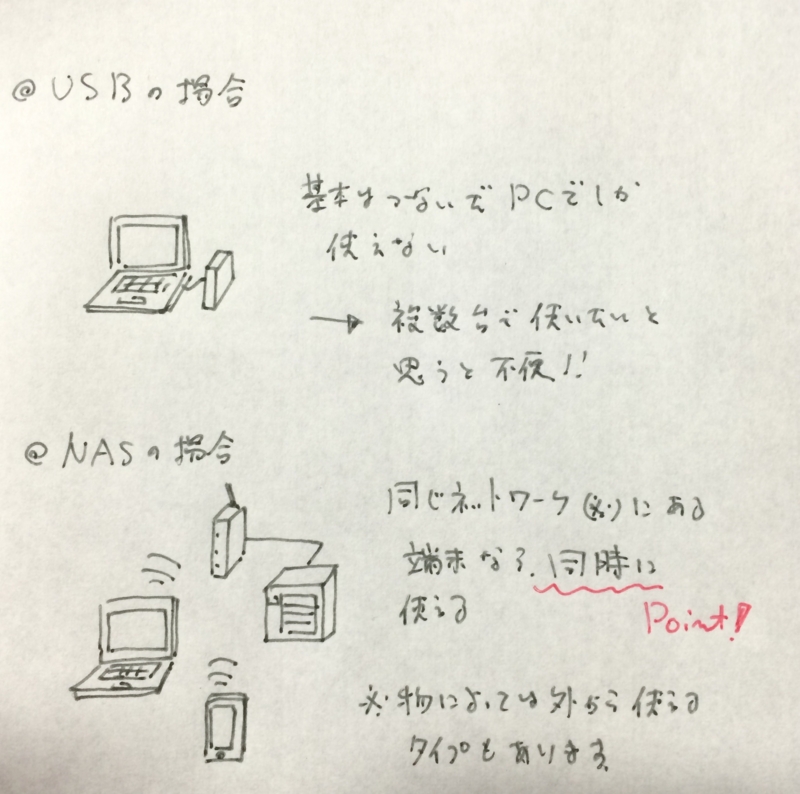 @ USBの場合
基本はつないだPCでしか
使えない
→ 複数台で使いたいと
思うと不便!!
@ NASの場合
同じネットワーク(※)にある
端末なら、同時に
使える
Point!
※物によっては外から使える
タイプもあります。